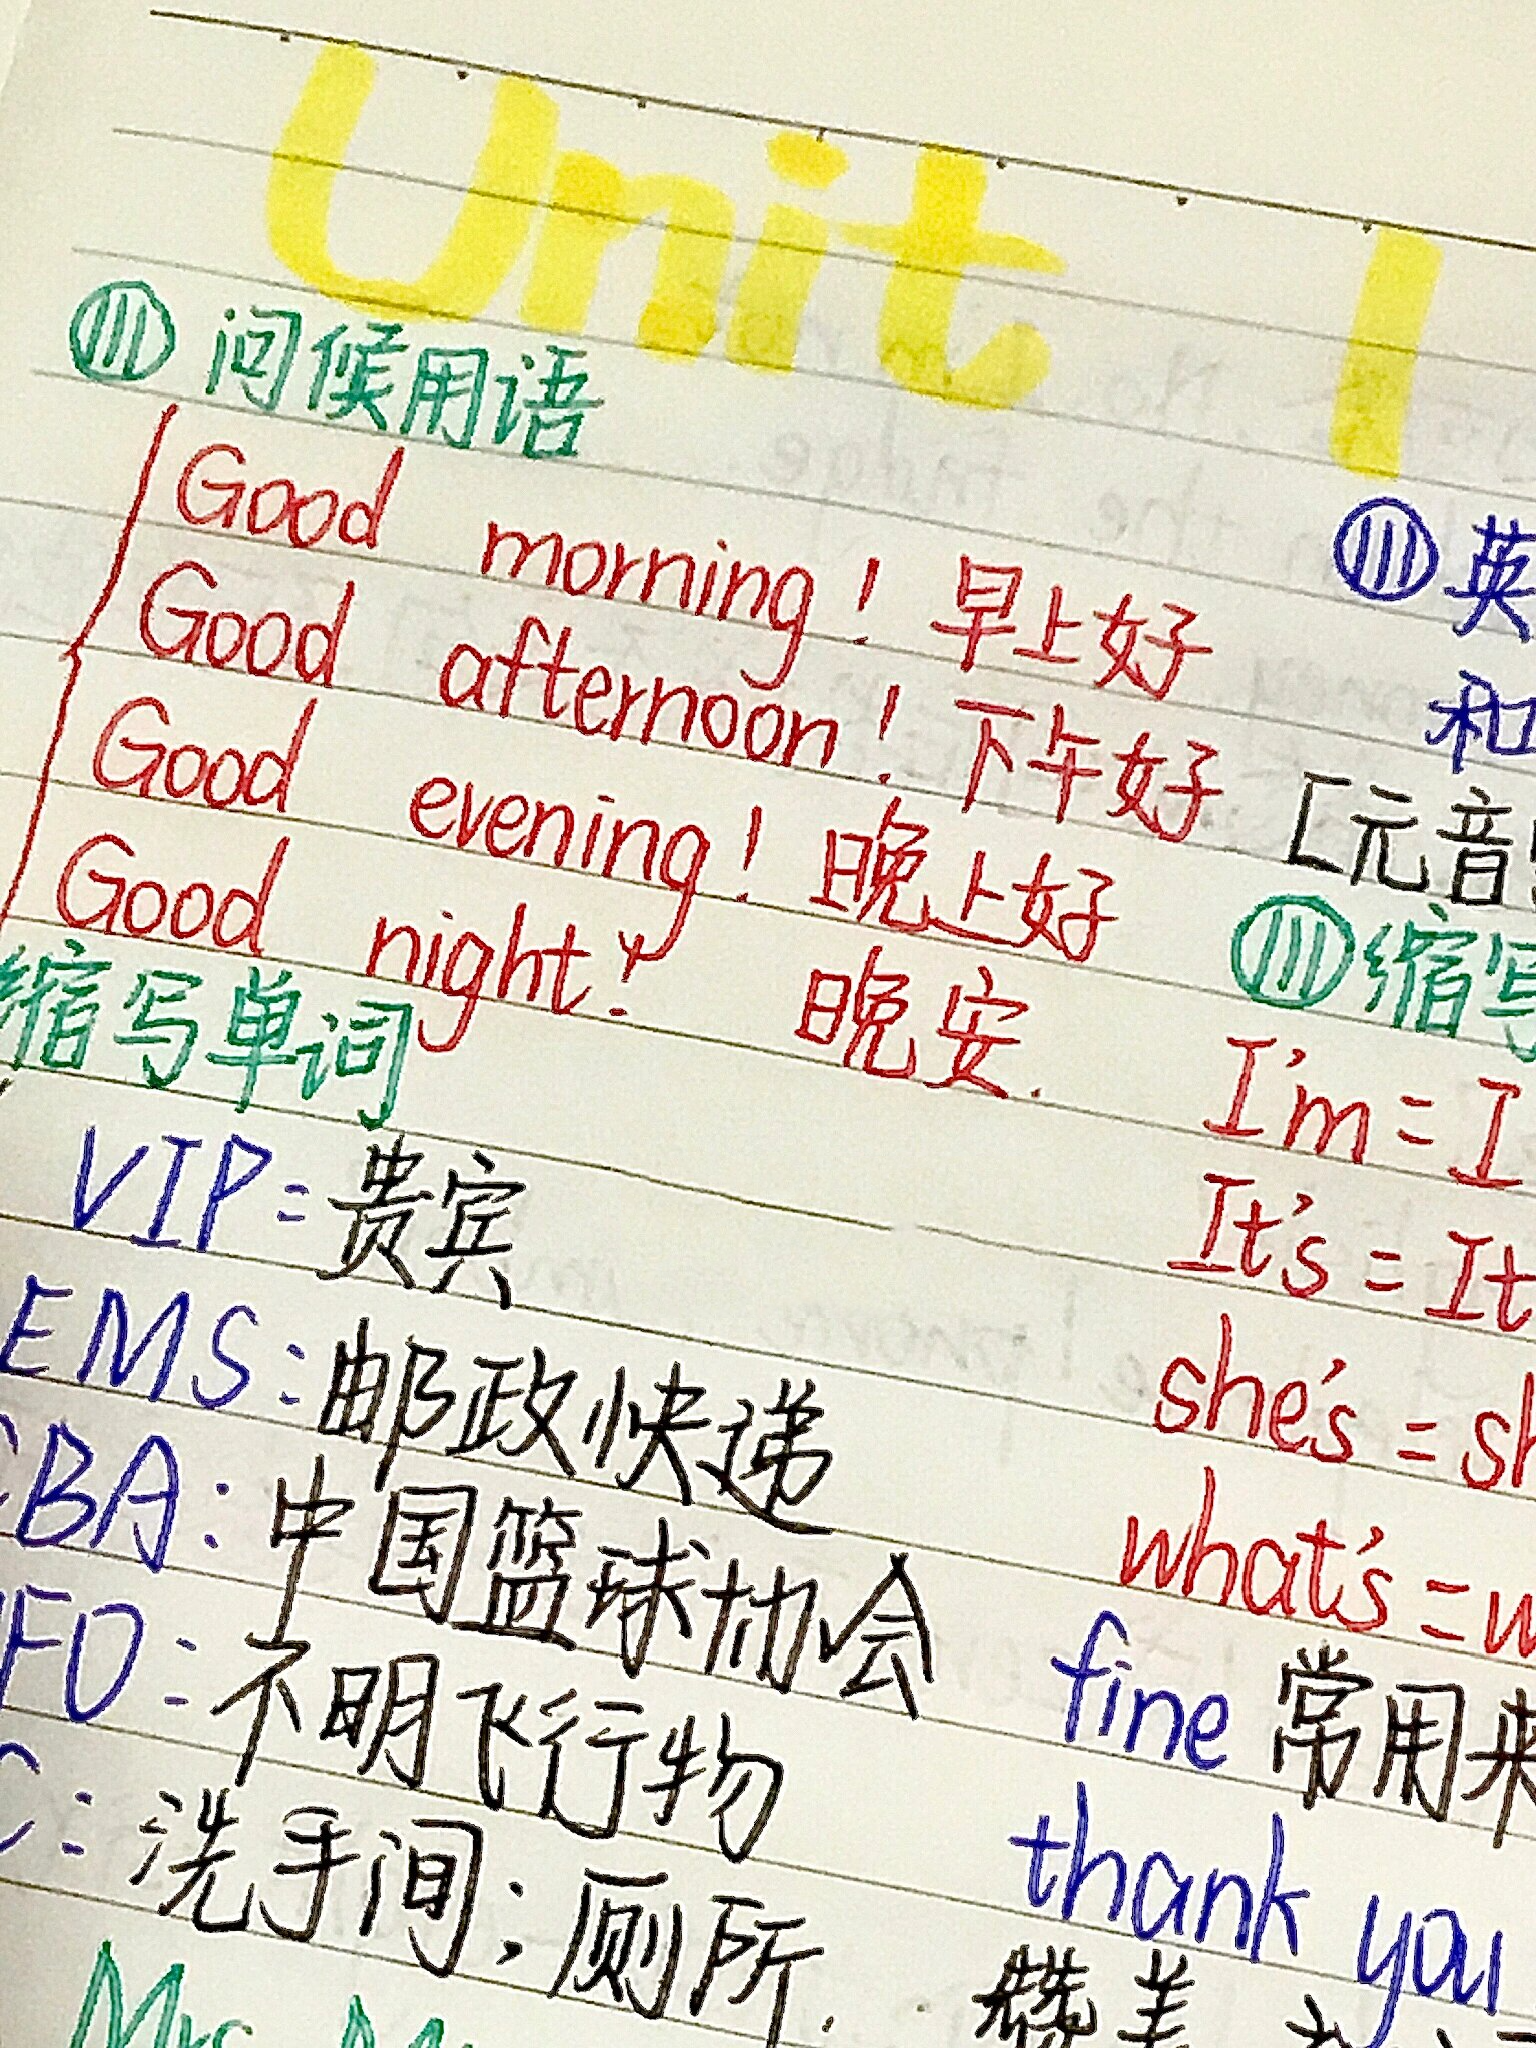 Unit 1
问候用语
Good morning! 早上好
Good afternoon! 下午好
Good evening! 晚上好
Good night! 晚安.
缩写单词
VIP=贵宾
EMS:邮政快递
CBA:中国篮球协会
UFO:不明飞行物
:洗手间;厕所.
Mrs
英
和
[元音
缩写
I'm=I
It's=It
she's=sh
what's=w
fine常用来
thank you
赞美